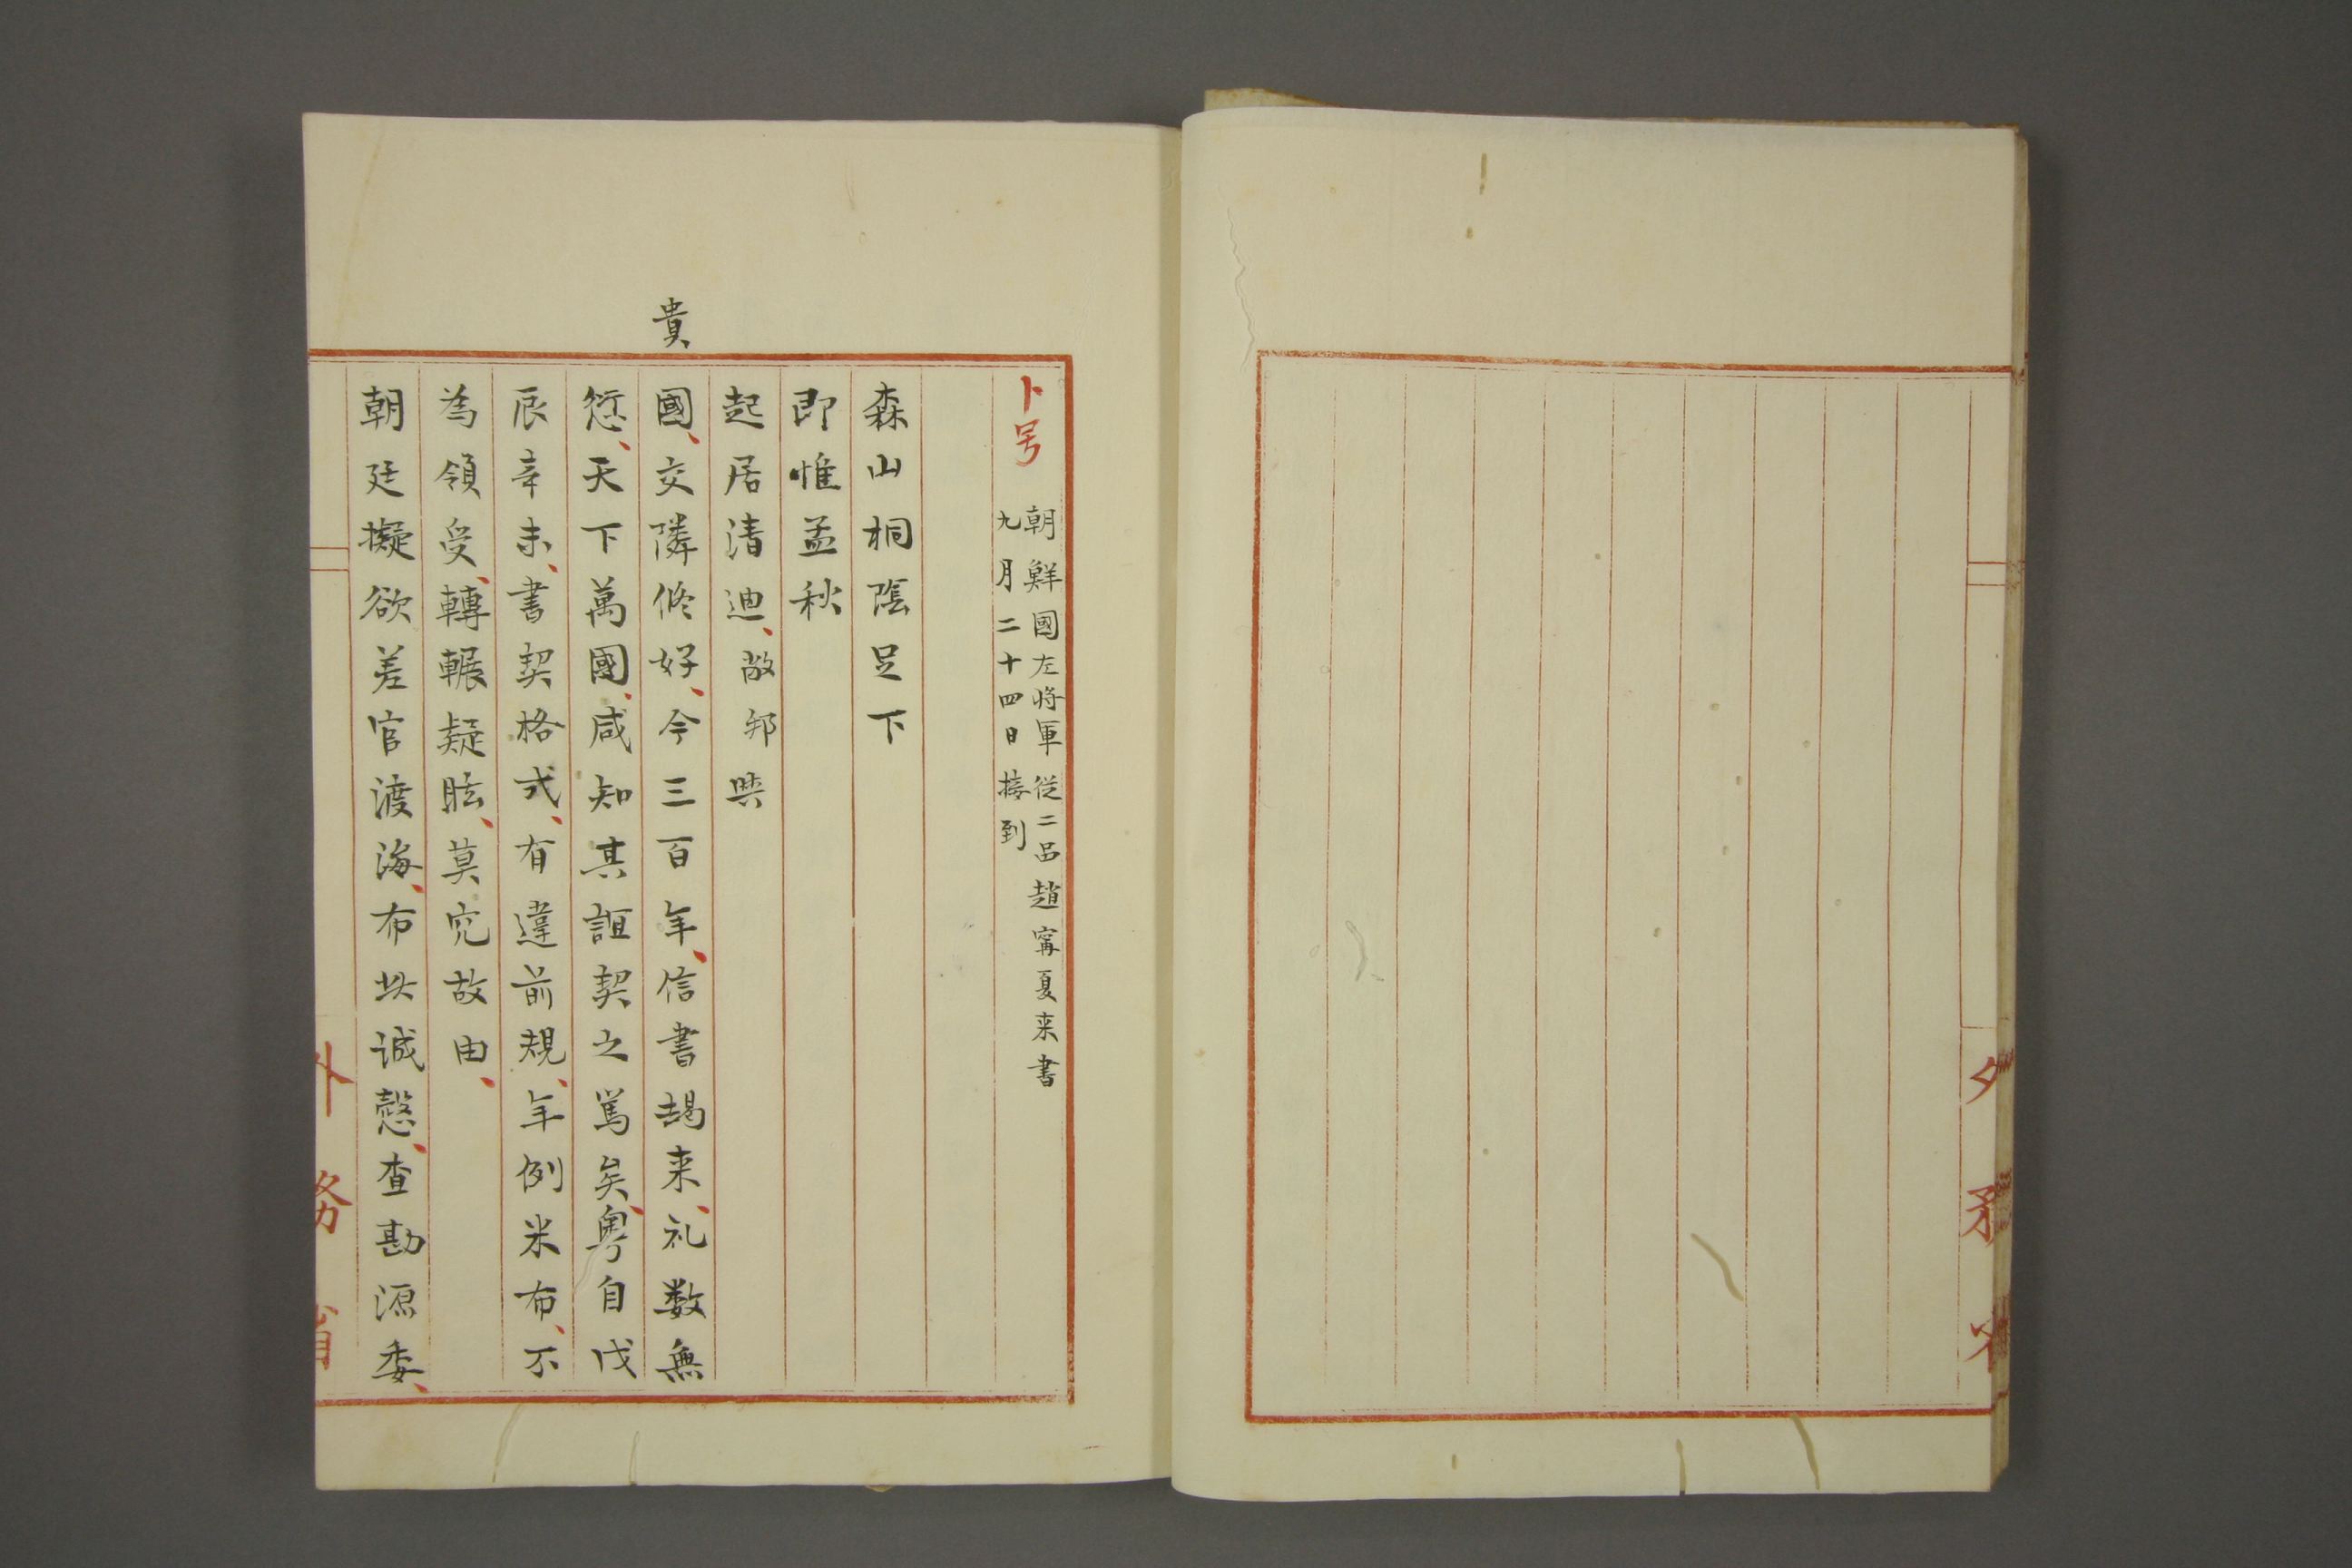 卜号
朝鮮国左将軍従二品趙寗夏来書
九月二十四日接到
森山桐陰足下
即惟孟秋
起居清迪、敝邦與
貴
國、交隣修好、今三百年、信書朅来、礼数無
愆、天下萬國、咸知其誼契之篤矣、粤自戊
辰辛未、書契格式、有違前規、年例米布、不
為領受、轉輾疑眩、莫究故由、
朝廷擬欲差官渡海、布出誠慤、査勘源委、
外務省